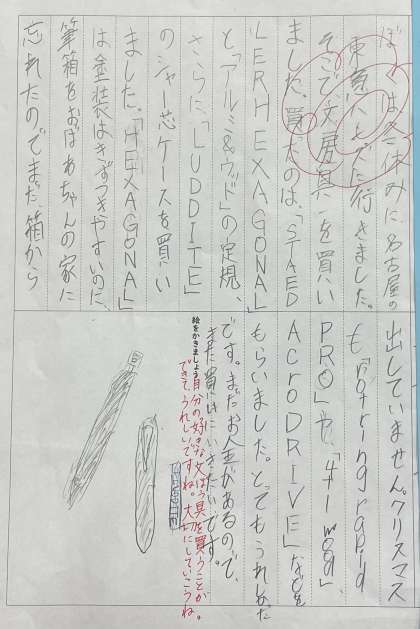 ぼくは冬休みに、名古屋の
東急ハンズに行きました。
そこで、文房具を買い
ました。買たのは、「STAED
LERHEXAGONAL」
と「アルミ&ウッド」の定規、
さらに「LUDDITE」
のシャー芯ケースを買い
ました。「HEXAGONAL」
は金装はきずつきやすいのに、
筆箱をおばあちゃんの家に
忘れたのでまだ、箱から
出していません。クリスマス
も「rotring rapid
PRO」や、「4+1 wood」、
AcroDRIVE」などを
もらいました。とってもうれしかた
です。まだお金があるので、
また買いにいきたいです。
絵をかきましょう
自分の好きな文ぼう具を買うことが
できて、うれしいですね。大切にしていこうね。